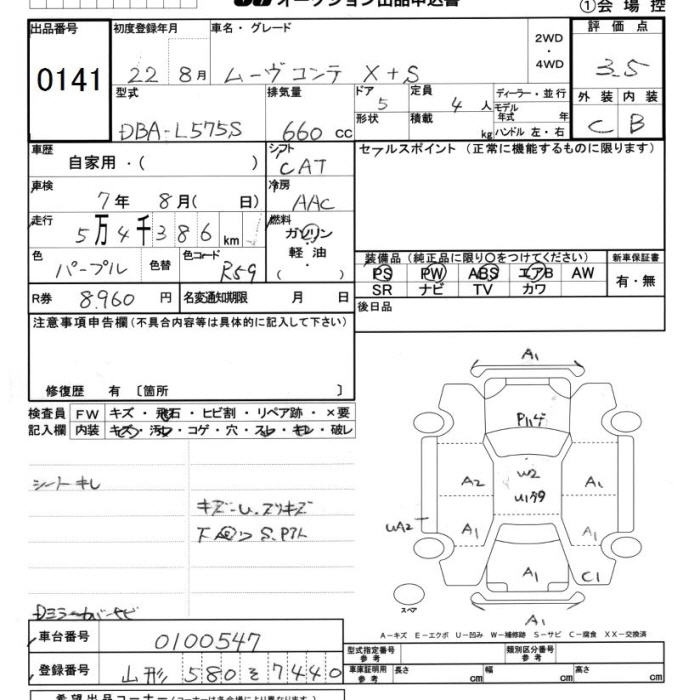 オークション出品申込書
①会 場 控
出品番号 初度登録年月 車名・グレード 2WD ・ 4WD 評 価 点
0141 22 8月 ムーヴコンテ X+S 3.5
型式 排気量 ドア 5 定員 4 人 ディーラー・並行 外 装 内 装
DBA-L575S 660 cc 形状 積載 kg モデル年式 年 ハンドル 左・右 C B
車歴 自家用・( ) シフト CAT セールスポイント (正常に機能するものに限ります)
車検 7年 8月( 日) 冷房 AAC
走行 5万4千386km 燃料 ガソリン 軽 油 ( ・ )
色 パープル 色替 色コード R59 装備品(純正品に限り○をつけてください) 新車保証書
PS PW ABS エアB AW 有・無
SR ナビ TV カワ
R券 8960 円 名変通知期限 月 日 後日品
注意事項申告欄(不具合内容等は具体的に記入して下さい)
修復歴 有 〔箇所 〕
検査員 FW キズ・飛石・ヒビ割・リペア跡・×要
記入欄 内装 キズ・汚れ・コゲ・穴・スレ・キレ・破レ
シートキレ
キズ・U.スリキズ
A1
Pハゲ
A2 W2 A1
U179
UA2 A1 A1
A1 C1
スペア
A1
A-キズ E-エクボ U-凹み W-補修跡 S-サビ C-腐食 XX-交換済
車台番号 0100547 型式指定番号 参 考 類別区分番号 参 考
登録番号 山形 580 そ 7440 車庫証明用 参 考 長さ cm 幅 cm 高さ cm
希望出品コーナー